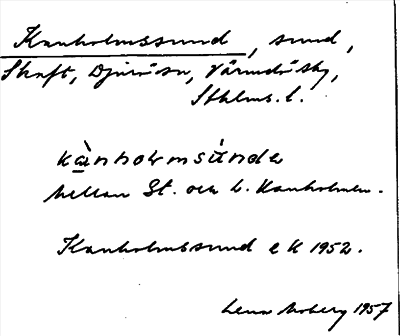 Kanholmssund, sund,
Skaft, Djurö sn, Värmdö skg,
Sthlms. l.
kànholmsùnde
Mellan St. och L. Kanholmen.
Kanholmssund e K 1952.
Lena Moberg 1957